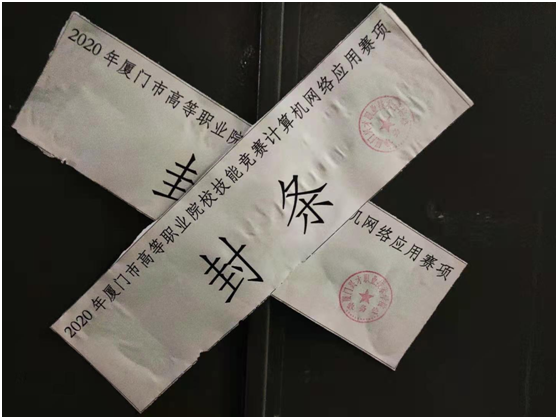 2020年厦门市高等职业院校技能竞赛计算机网络应用赛项
封条
2020年厦门市高等职业院
机网络应用赛项